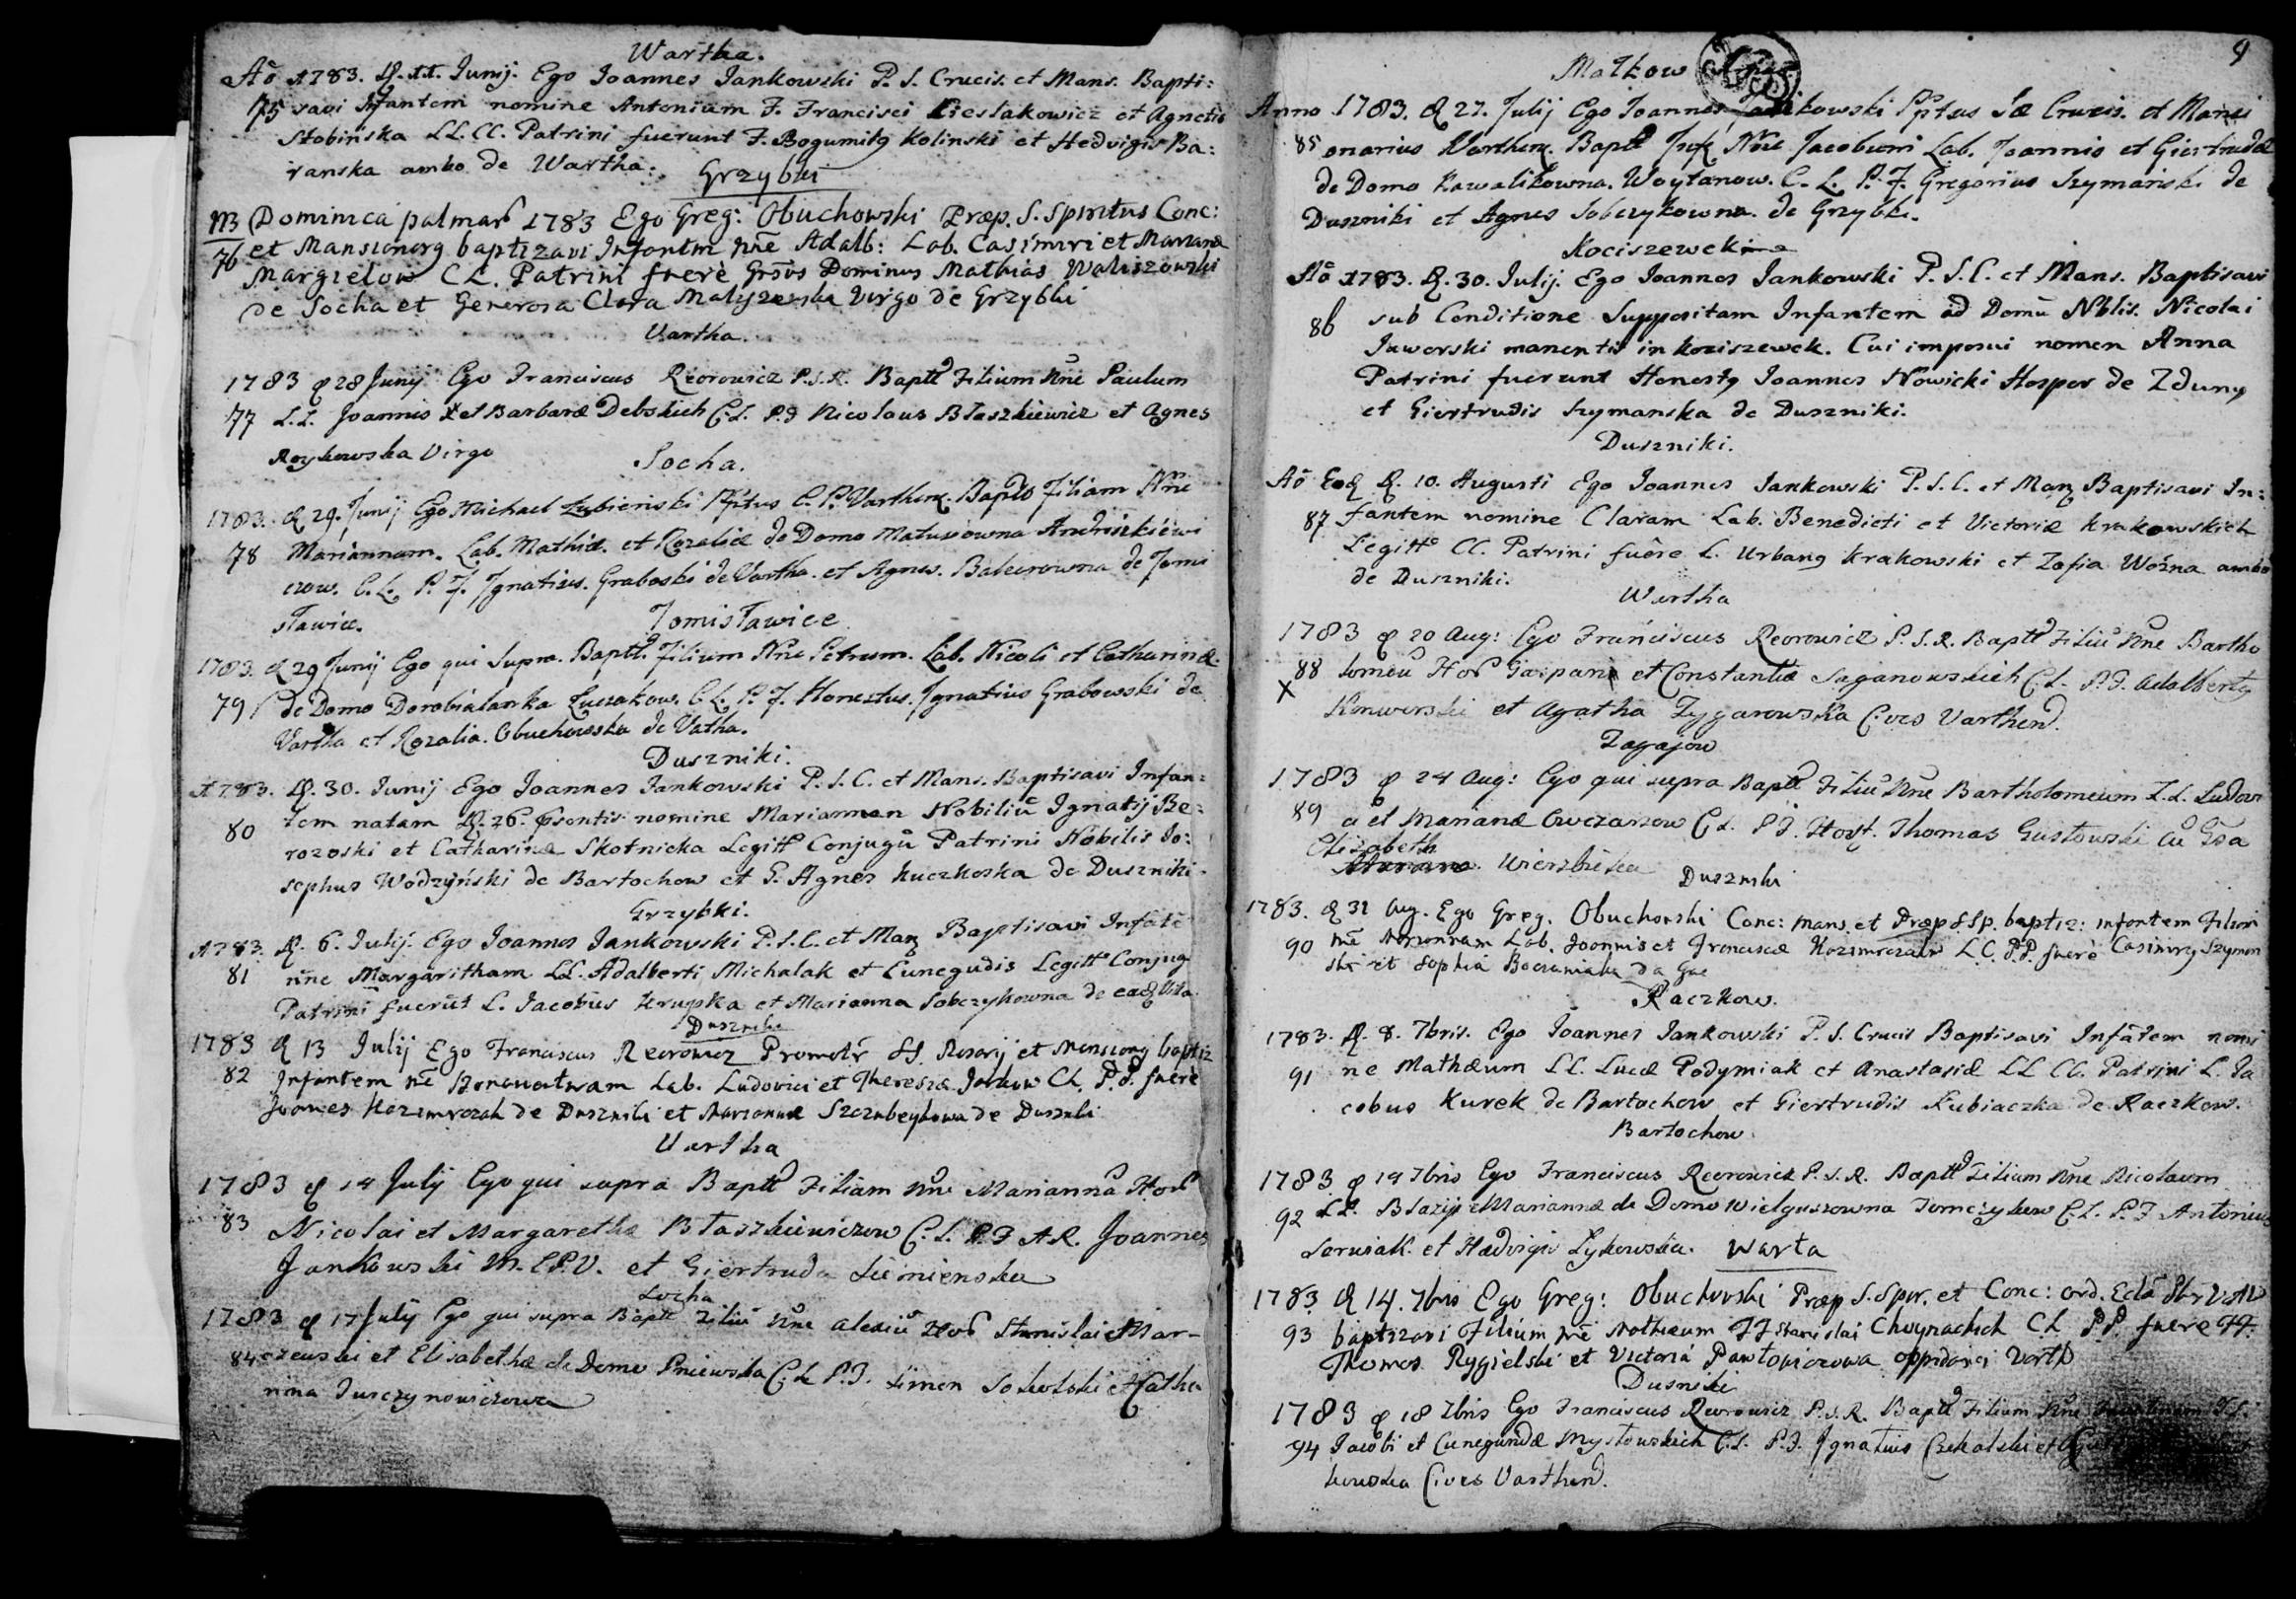 Wartha.
Aõ 1783. D. 11. Junij. Ego Joannes Jankowski P. S. Crucis. et Mans. Bapti:
75 savi Infantem nomine Antonium F. Francisci Cieslakowicz et Agnetis
Stobińska LL. CC. Patrini fuerunt F. Bogumilg Kolinski et Hedvigis Ba:
ranska ambo de Wartha.
Grzybki
Dominica palmar 1783 Ego Greg: Obuchowski Præp. S. Spiritus Conc:
76 et Mansionarg baptizavi Infantm nñe Adalb: Lab. Casimiri et Marianæ
Margielow CL. Patrini fuerè Grõsus Dominus Mathias Waliszowski
de Socha et Generosa Clara Malyszewska Virgo de Grzybki
Vartha.
1783 d 28 Junij Ego Franciscus Reorowicz P.S.R. Baptt Filium Nñe Paulum
77 L.L. Joannis et Barbaræ Debskich C.L. P.F Nicolaus Błaszkiewicz et Agnes
Roykowska Virgo
Socha.
1783. d 29. Junij Ego Michael Łubieński Pptus C. P. Varthen. Baptto Filiam Nñe
78 Mariannam. Lab. Mathiæ. et Rozaliæ de Domo Matusiowna Andriszkiewi
czow. C. L. P. F. Ignatius. Graboski de Vartha. et Agnes. Balcerowna de Tomi
sławice.
Tomisławice
1783. d 29 Junij Ego qui Supra. Baptt. Filium Nñe Petrum. Lab. Nicoli et Catharinæ
79 de Domo Dorobialanka Łuczakow. C L. P. F. Honestus. Ignatius Grabowski de
Vartha et Rozalia. Obuchowska de Vatha.
Duszniki.
1783. D. 30. Junij Ego Joannes Jankowski P. S. C. et Mans. Baptisavi Infan:
80 tem natam D. 26. psentis nomine Mariannam Nobiliũ Ignatij Be:
rozoski et Catharinæ Skotnicka Legitt Conjugũ Patrini Nobilis Jo:
sephus Wodzyński de Bartochow et G. Agnes Kuczkoska de Duszniki.
Grzybki.
1783. D. 6. Julij. Ego Joannes Jankowski P. S. C. et Man Baptisavi Infatẽ
81 nñe Margaritham LL. Adalberti Michalak et Cunegudis Legitt Conjug
Patrini fuerũt L. Jacobus Krupka et Marianna Sobczykowna de eadg Villa.
Duszniki
1783 d 13 Julij Ego Franciscus Reorowicz Promotr SS. Rosarij et Mansiong baptiz
82 Infantem nẽ Lab. Ludovici et Theresæ Jankow CL P. P. fuerè
Joannes Kazimrczak de Duszniki et Marianna Szczubeykowa de Duszniki
Vartha
1783 d 14 July Ego qui supra Baptt Filiam Nñe Mariannã Hon
83 Nicolai et Margarethæ Błaszkiewiczow C. L. P.F A.R. Joannes
Jankowski M. E.P.V. et Giertruda Siemienska
Socha
1783 d 17 July Ego qui supra Baptt Filiũ Nñe Alexiũ Hon Stanislai Mar-
84 czewski et Elisabethæ de Domo Pniewska C. L P.F. Simon Sokolski et Catha
rina Jurczynowiczowa
Małkow
Anno 1783. d 27. Julij Ego Joannes Jankowski Pptus Sæ Crucis. et Mansi
85 onarius Varthen. Baptt Inf Nñe Jacobum Lab. Joannis et Giertrudæ
de Domo Kawalikowna. Woytanow. C. L. P. F. Gregorius Szymański de
Duszniki et Agnes Sobczykowna. de Grzybki.
Kociszewek
Aõ 1783. D. 30. Julij. Ego Joannes Jankowski P. S. C. et Mans. Baptisavi
86 sub Conditione Suppositam Infantem ad Domũ Nblis. Nicolai
Jaworski manentis in Kociszewek. Cui imposui nomen Anna
Patrini fuerunt Honestg Joannes Nowicki Hospes de Zduny
et Giertrudis Szymanska de Duszniki.
Duszniki.
Aõ Eod D. 10. Augusti Ego Joannes Jankowski P. S. C. et Man Baptisavi In:
87 fantem nomine Claram Lab. Benedicti et Victoriæ Krakowskich
Legitt CC. Patrini fuêre L. Urbang Krakowski et Zofia Woźna ambo
de Duszniki.
Wartha
1783 d 20 Aug: Ego Franciscus Reorowicz P. S. R. Baptt Filiũ Nñe Bartho
88 lomeũ Hon Gaspari et Constantiæ Saganowskich C. L. P.F. Adalbertg
X
Konwerski et Agatha Zygarowska Cives Varthen.
Zagajow
1783 d 24 Aug: Ego qui supra Baptt Filiũ Nñe Bartholomeum L.L. Ludovi
89 ci et Marianæ Owczarzow C L. P F. Thomas Gustowski cũ Gsa
Elizabeth
Wierzbicka
Duszniki
1783. d 31 Aug. Ego Greg. Obuchowski Conc: mans. et Præp S Sp. baptiz: infantem Filiam
90 nẽ Mariannam Lab. Joannis et Franciscæ Kazimrczakow L C. P.P. fuerè Casimirg Szyman
ski et Sophia
Raczkow.
1783. D. 8. 7bris. Ego Joannes Jankowski P. S. Crucis Baptisavi Infãtem nomi
91 ne Mathæum LL. Lucæ Podymiak et Anastasiæ LL CC. Patrini L. Ja
cobus Kurek de Bartochow et Giertrudis Lubiaczka de Raczkow.
Bartochow
1783. d 14 7bris Ego Franciscus Reorowicz P. S. R. Baptt Filium Nñe Nicolaum
92 LL. Blazij et Mariannæ de Domo Wielguszowna Tomczykow C L. P. F Antonius
Seruiak. et Hædvigis Łykowska.
Warta
1783 d 14. 7bris Ego Greg: Obuchowski Præp S. Spir. et Conc: ord.
93 baptizavi Filium nẽ Matheum FF Stanislai Choynackich CL PP. fuere FF.
Thomas Rygielski et Victoria Pawłowiczowa oppidani Varth
Duszniki
1783 d 18 7bris Ego Franciscus Reorowicz P. S. R. Baptt Filium Nñe
94 Jacobi et Cunegundæ Mysłowskich C. L. P. F. Ignatius Czekalski et
kowska Cives Varthen.